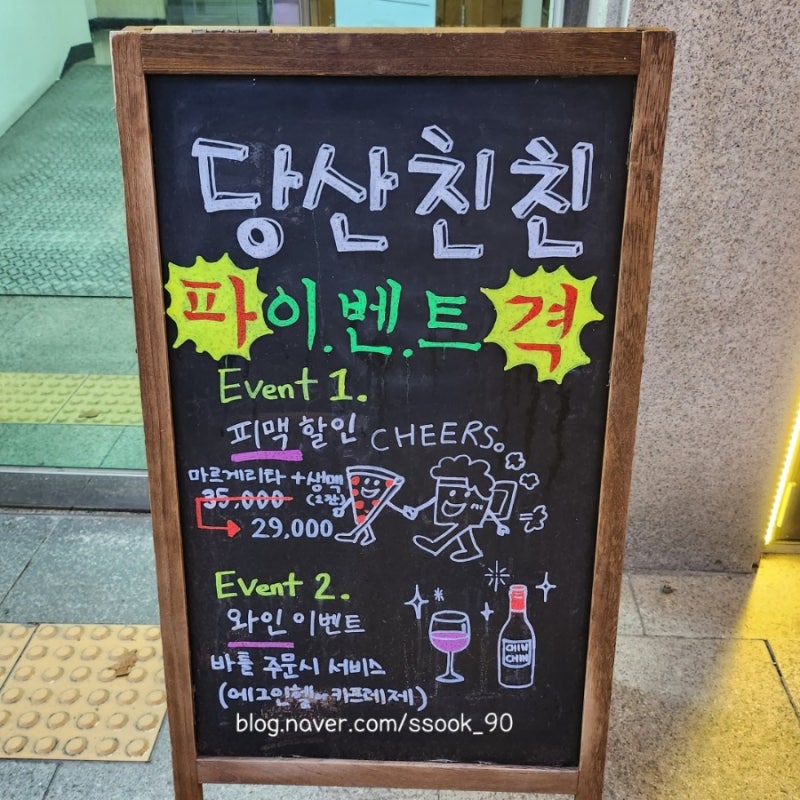 당산친친
파이.벤.트격
Event 1.
피맥 할인
CHEERS.
마르게리타 + 생맥
35,000 (2잔)
29,000
Event 2.
와인 이벤트
CHIN
CHIN
바틀 주문시 서비스
(에그인헬 or 카프레제)
blog.naver.com/ssook_90